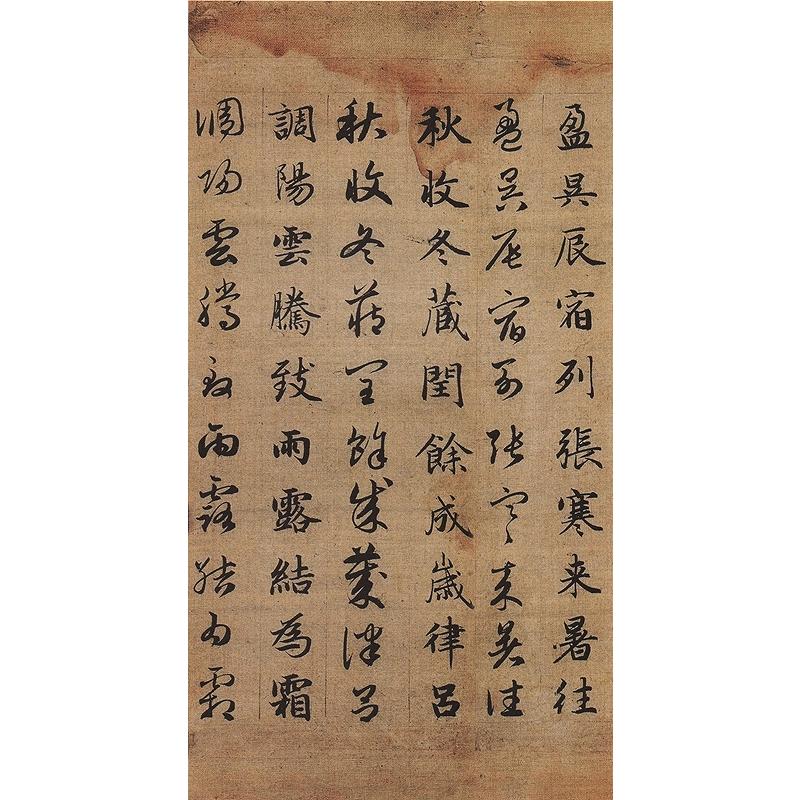 盈昃辰宿列張寒来暑往
盈昃辰宿列張寒来暑往
秋收冬蔵閏餘成歳律呂
秋收冬蔵閏餘成歳律呂
調陽雲騰致雨露結為霜
調陽雲騰致雨露結為霜